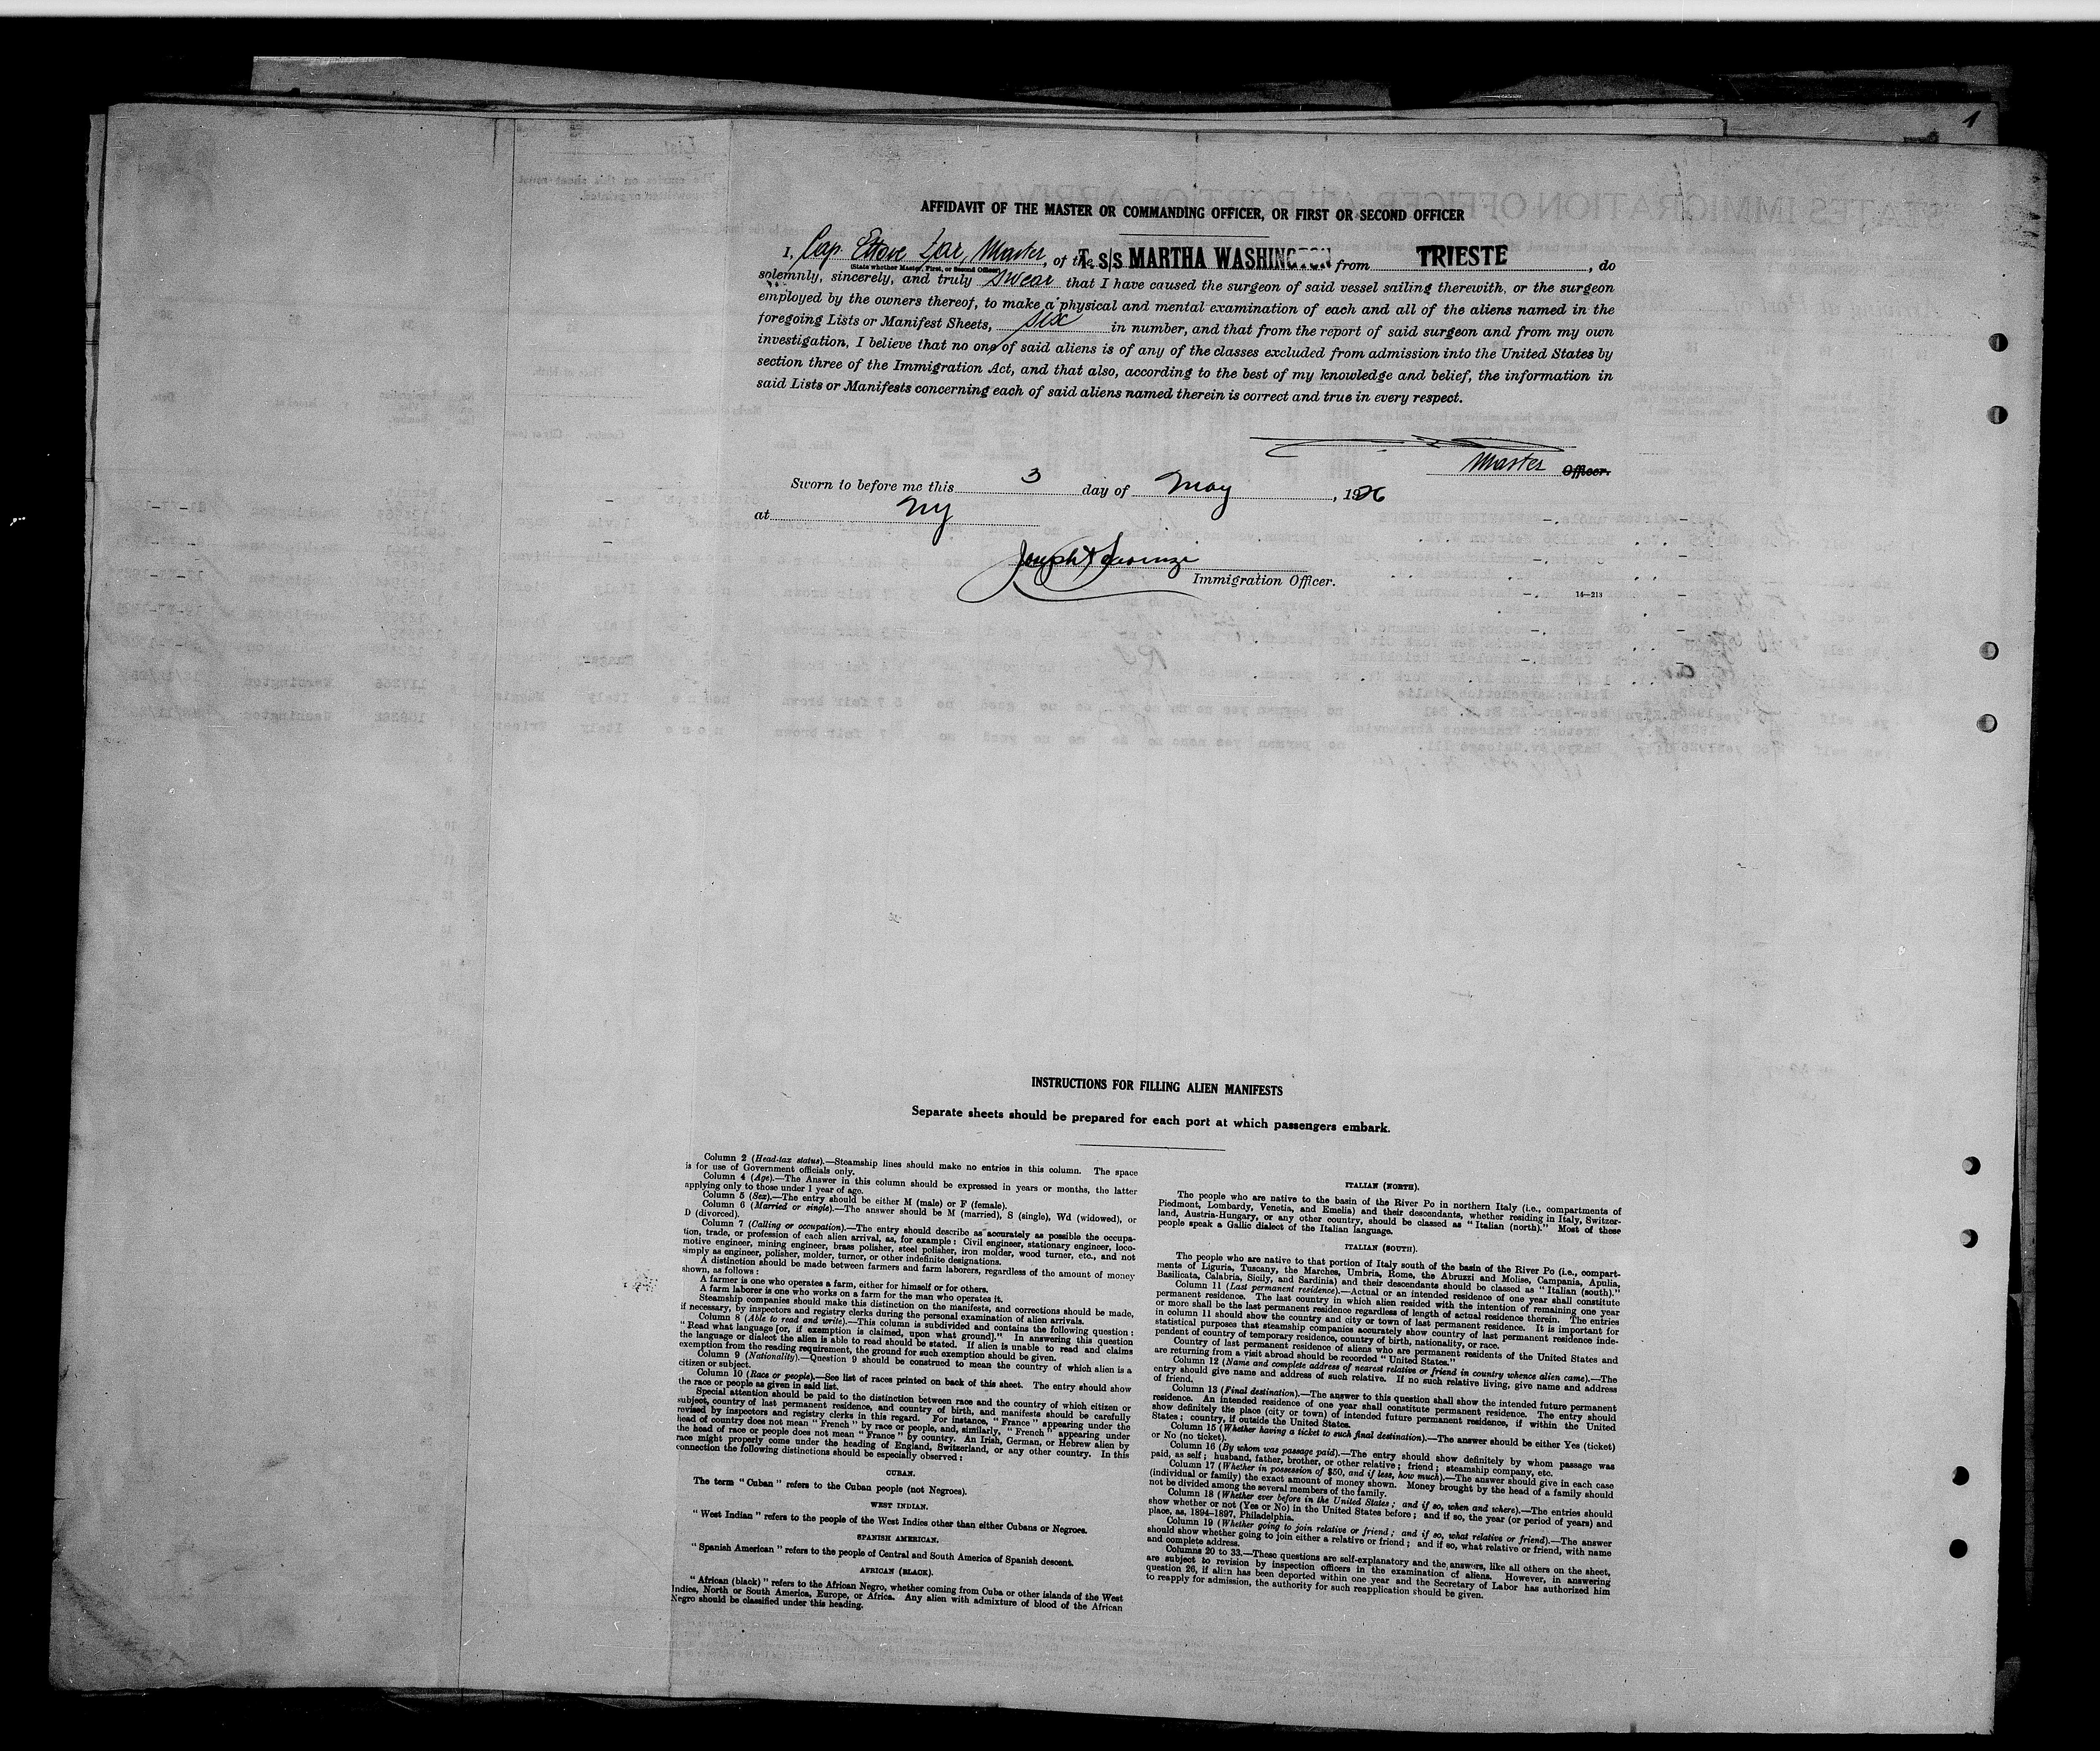 1
AFFIDAVIT OF THE MASTER OR COMMANDING OFFICER, OR FIRST OR SECOND OFFICER
I, Cap. Ettore Zar, Master, of the T. s/s MARTHA WASHINGTON from TRIESTE, do
(State whether Master, First, or Second Officer)
solemnly, sincerely, and truly swear that I have caused the surgeon of said vessel sailing therewith, or the surgeon
employed by the owners thereof, to make a physical and mental examination of each and all of the aliens named in the
foregoing Lists or Manifest Sheets, six in number, and that from the report of said surgeon and from my own
investigation, I believe that no one of said aliens is of any of the classes excluded from admission into the United States by
section three of the Immigration Act, and that also, according to the best of my knowledge and belief, the information in
said Lists or Manifests concerning each of said aliens named therein is correct and true in every respect.
Master Officer.
Sworn to before me this 3 day of May, 1926
at NY
Joseph
Immigration Officer.
14—213
INSTRUCTIONS FOR FILLING ALIEN MANIFESTS
Separate sheets should be prepared for each port at which passengers embark.
Column 2 (Head-tax status).—Steamship lines should make no entries in this column. The space
is for use of Government officials only.
Column 4 (Age).—The Answer in this column should be expressed in years or months, the latter
applying only to those under 1 year of age.
Column 5 (Sex).—The entry should be either M (male) or F (female).
Column 6 (Married or single).—The answer should be M (married), S (single), Wd (widowed), or
D (divorced).
Column 7 (Calling or occupation).—The entry should describe as accurately as possible the occupa-
tion, trade, or profession of each alien arrival, as, for example: Civil engineer, stationary engineer, loco-
motive engineer, mining engineer, brass polisher, steel polisher, iron molder, wood turner, etc., and not
simply as engineer, polisher, molder, turner, or other indefinite designations.
A distinction should be made between farmers and farm laborers, regardless of the amount of money
shown, as follows:
A farmer is one who operates a farm, either for himself or for others.
A farm laborer is one who works on a farm for the man who operates it.
Steamship companies should make this distinction on the manifests, and corrections should be made,
if necessary, by inspectors and registry clerks during the personal examination of alien arrivals.
Column 8 (Able to read and write).—This column is subdivided and contains the following question:
"Read what language [or, if exemption is claimed, upon what ground]." In answering this question
the language or dialect the alien is able to read should be stated. If alien is unable to read and claims
exemption from the reading requirement, the ground for such exemption should be given.
Column 9 (Nationality).—Question 9 should be construed to mean the country of which alien is a
citizen or subject.
Column 10 (Race or people).—See list of races printed on back of this sheet. The entry should show
the race or people as given in said list.
Special attention should be paid to the distinction between race and the country of which citizen or
subject, country of last permanent residence, and country of birth, and manifests should be carefully
revised by inspectors and registry clerks in this regard. For instance, "France" appearing under the
head of country does not mean "French" by race or people, and, similarly, "French" appearing under
the head of race or people does not mean "France" by country. An Irish, German, or Hebrew alien by
race might properly come under the heading of England, Switzerland, or any other country. In this
connection the following distinctions should be especially observed:
CUBAN.
The term "Cuban" refers to the Cuban people (not Negroes).
WEST INDIAN.
"West Indian" refers to the people of the West Indies other than either Cubans or Negroes.
SPANISH AMERICAN.
"Spanish American" refers to the people of Central and South America of Spanish descent.
AFRICAN (BLACK).
"African (black)" refers to the African Negro, whether coming from Cuba or other islands of the West
Indies, North or South America, Europe, or Africa. Any alien with admixture of blood of the African
Negro should be classified under this heading.
ITALIAN (NORTH).
The people who are native to the basin of the River Po in northern Italy (i.e., compartments of
Piedmont, Lombardy, Venetia, and Emelia) and their descendants, whether residing in Italy, Switzer-
land, Austria-Hungary, or any other country, should be classed as "Italian (north)." Most of these
people speak a Gallic dialect of the Italian language.
ITALIAN (SOUTH).
The people who are native to that portion of Italy south of the basin of the River Po (i.e., compart-
ments of Liguria, Tuscany, the Marches, Umbria, Rome, the Abruzzi and Molise, Campania, Apulia,
Basilicata, Calabria, Sicily, and Sardinia) and their descendants should be classed as "Italian (south)."
Column 11 (Last permanent residence).—Actual or an intended residence of one year shall constitute
permanent residence. The last country in which alien resided with the intention of remaining one year
or more shall be the last permanent residence regardless of length of actual residence therein. The entries
in column 11 should show the country and city or town of last permanent residence. It is important for
statistical purposes that steamship companies accurately show country of last permanent residence inde-
pendent of country of temporary residence, country of birth, nationality, or race.
Country of last permanent residence of aliens who are permanent residents of the United States and
are returning from a visit abroad should be recorded "United States."
Column 12 (Name and complete address of nearest relative or friend in country whence alien came).—The
entry should give name and address of such relative. If no such relative living, give name and address
of friend.
Column 13 (Final destination).—The answer to this question shall show the intended future permanent
residence. An intended residence of one year shall constitute permanent residence. The entry should
show definitely the place (city or town) of intended future permanent residence, if within the United
States; country, if outside the United States.
Column 15 (Whether having a ticket to such final destination).—The answer should be either Yes (ticket)
or No (no ticket).
Column 16 (By whom was passage paid).—The entry should show definitely by whom passage was
paid, as self; husband, father, brother, or other relative; friend; steamship company, etc.
Column 17 (Whether in possession of $50, and if less, how much).—The answer should give in each case
(individual or family) the exact amount of money shown. Money brought by the head of a family should
not be divided among the several members of the family.
Column 18 (Whether ever before in the United States; and if so, when and where).—The entries should
show whether or not (Yes or No) in the United States before; and if so, the year (or period of years) and
place, as, 1894-1897, Philadelphia.
Column 19 (Whether going to join relative or friend; and if so, what relative or friend).—The answer
should show whether going to join either a relative or friend; and if so, what relative or friend, with name
and complete address.
Columns 20 to 33.—These questions are self-explanatory and the answers, like all others on the sheet,
are subject to revision by inspection officers in the examination of aliens. However, in answering
question 26, if alien has been deported within one year and the Secretary of Labor has authorized him
to reapply for admission, the authority for such reapplication should be given.